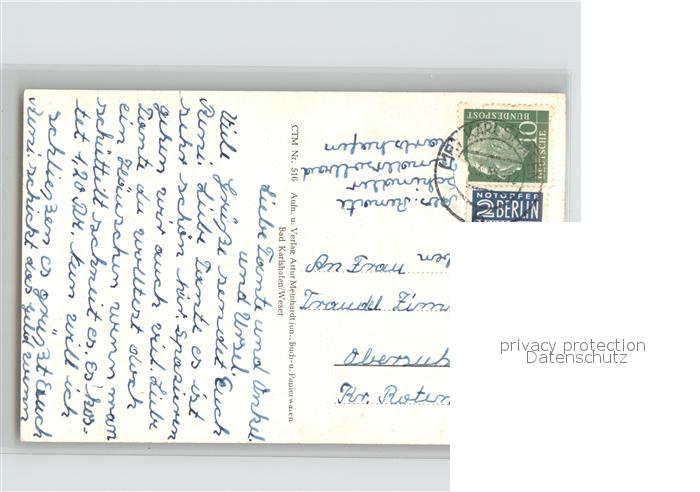 Liebe Tante und Onkel
und Ursel.
Viele Grüße sendet Euch
Reni. Liebe Tante es ist
sehr schön hier. Spazieren
gehen wir auch viel. Liebe
Tante du wolltest doch
ein Häuschen wenn man
schüttelt schneit es. Es kos-
tet 1,20 DM. Nun will ich
schließen es grüßt Euch
Reni schickt das Geld wenn
CTM Nr. 516 Aufn. u. Verlag Artur Meinhardt jun., Buch- u. Papierwaren
Bad Karlshafen/Weser
Abs. Renate
Schindler
Karlshafen
DEUTSCHE
BUNDESPOST
10
NOTOPFER
2 BERLIN
An Frau
Traudel Zim
Obersuh
Kr. Roten
privacy protection
Datenschutz